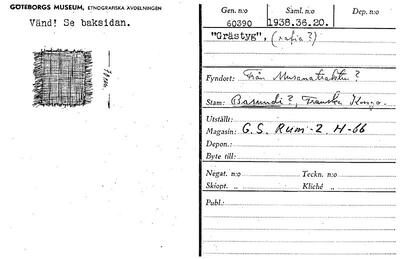 GÖTEBORGS MUSEUM, ETNOGRAFISKA AVDELNINGEN
Vänd! Se baksidan.
Gen. n:o Saml. n:o Dep. n:o
60390 1938.36.20.
"Grästyg". (rafia?)
Fyndort: Från
Stam: Basundi?, Franska Kongo.
Utställt:
Magasin: G.S. Rum-2 H-66
Depon.:
Byte till:
Negat. n:o Teckn. n:o
Skiopt. „ Kliché „
Publ.: